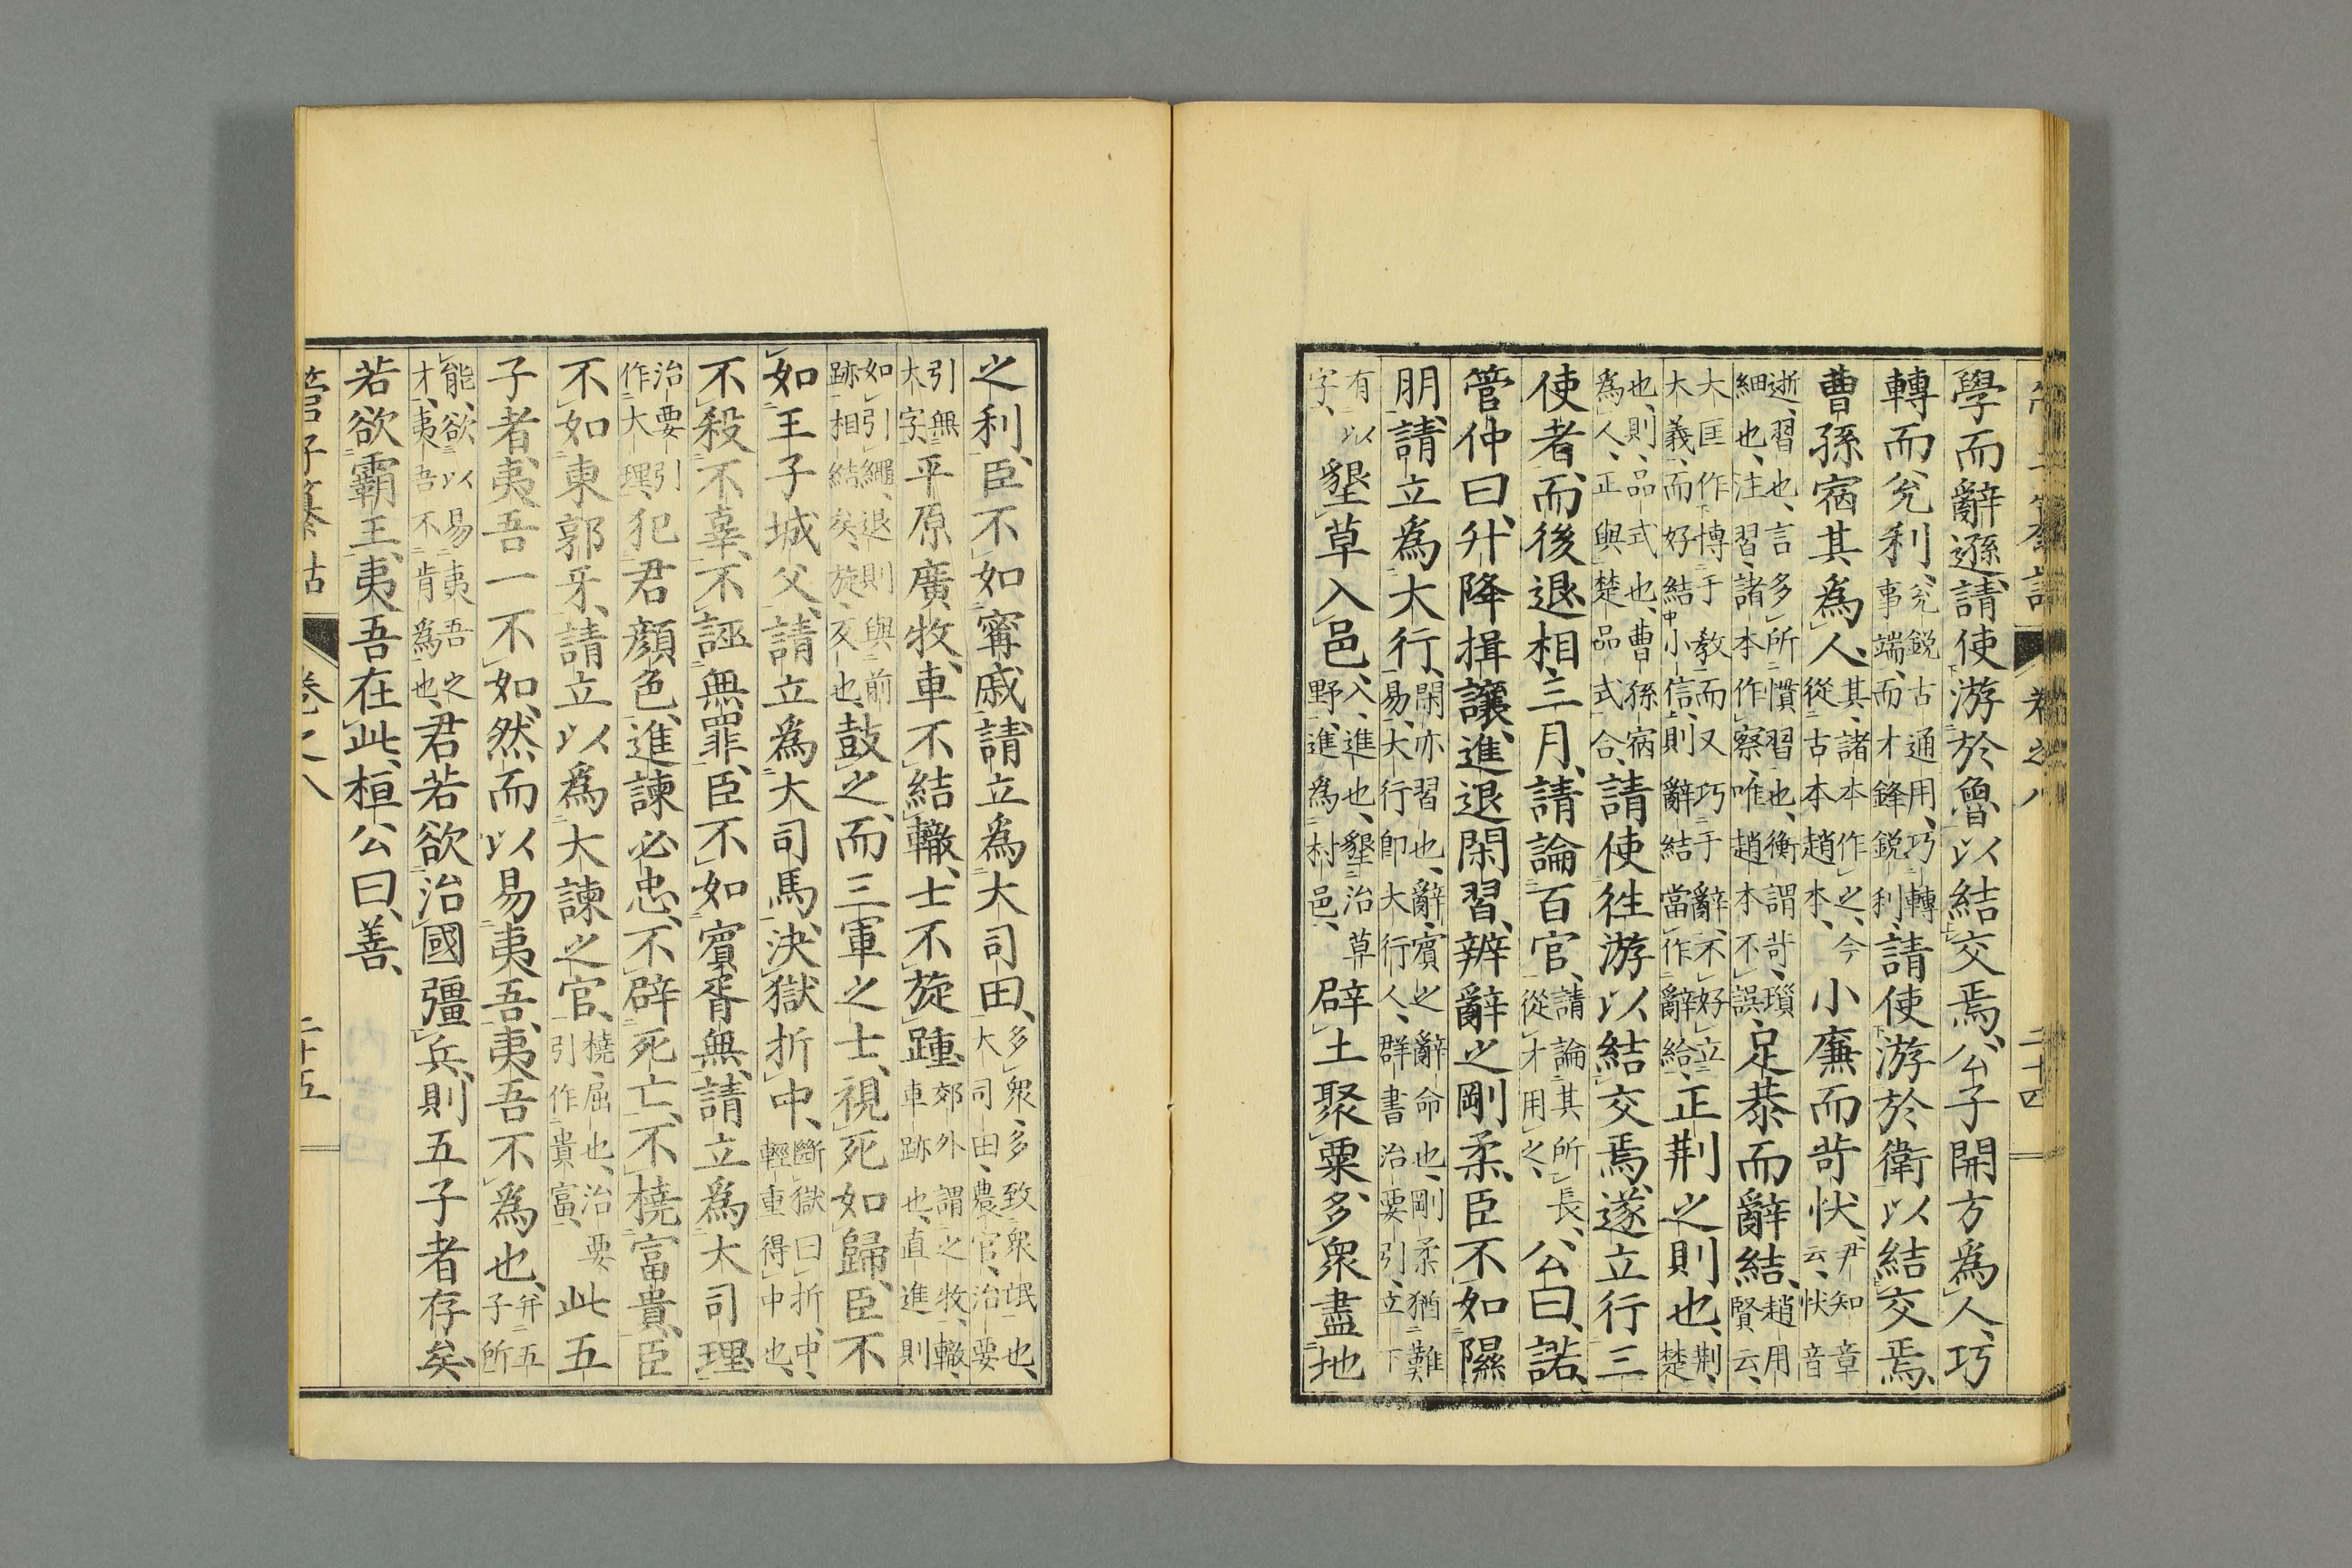 學而辭遜、請使游於魯以結交焉、公子開方爲人、巧
轉而兊利、兊鋭古通用、巧轉事端、而才鋒鋭利、請使游於衛以結交焉、
曹孫宿其爲人、其、諸本作之、今從古本趙本、小廉而苛忕、尹知章云、忕音
逝、習也、言多所慣習也、衡謂苛、瑣細也、注習、諸本作察、唯趙本不誤、足恭而辭結、趙用賢云、
大匡作博于教而又巧于辭、不好立大義、而好結小信、則辭結當作辭給、正荆之則也、荆、楚
也、則、品式也、曹孫宿爲人、正與楚品式合、請使往游以結交焉、遂立行三
使者、而後退相、三月、請論百官、請論其所長、從才用之、公曰、諾、
管仲曰、升降揖讓、進退閑習、辨辭之剛柔、臣不如隰
朋、請立爲大行、閑亦習也、辭、賓之辭命也、剛柔猶難易、大行卽大行人、群書治要引、立下
有以字、墾草入邑、入、進也、墾治草野、進爲村邑、辟土聚粟、多衆盡地
管子纂詁 卷之八 二十四
之利、臣不如甯戚、請立爲大司田、多衆、多致衆氓也、大司田、農官、治要
引無大字、平原廣牧、車不結轍、士不旋踵、郊外謂之牧、轍、車跡也、直進則
如引繩、退則與前跡相結矣、旋、反也、鼓之、而三軍之士、視死如歸、臣不
如王子城父、請立爲大司馬、決獄折中、斷獄曰折、中、輕重得中也、
不殺不辜、不誣無罪、臣不如賓胥無、請立爲大司理、
治要引作大理、犯君顏色、進諫必忠、不辟死亡、不橈富貴、臣
不如東郭牙、請立以爲大諫之官、橈、屈也、治要引作貴富、此五
子者、夷吾一不如、然而以易夷吾、夷吾不爲也、并五子所
能、欲以易夷吾之才、夷吾不肯爲也、君若欲治國彊兵、則五子者存矣、
若欲霸王、夷吾在此、桓公曰、善、
管子纂詁 卷之八 二十五